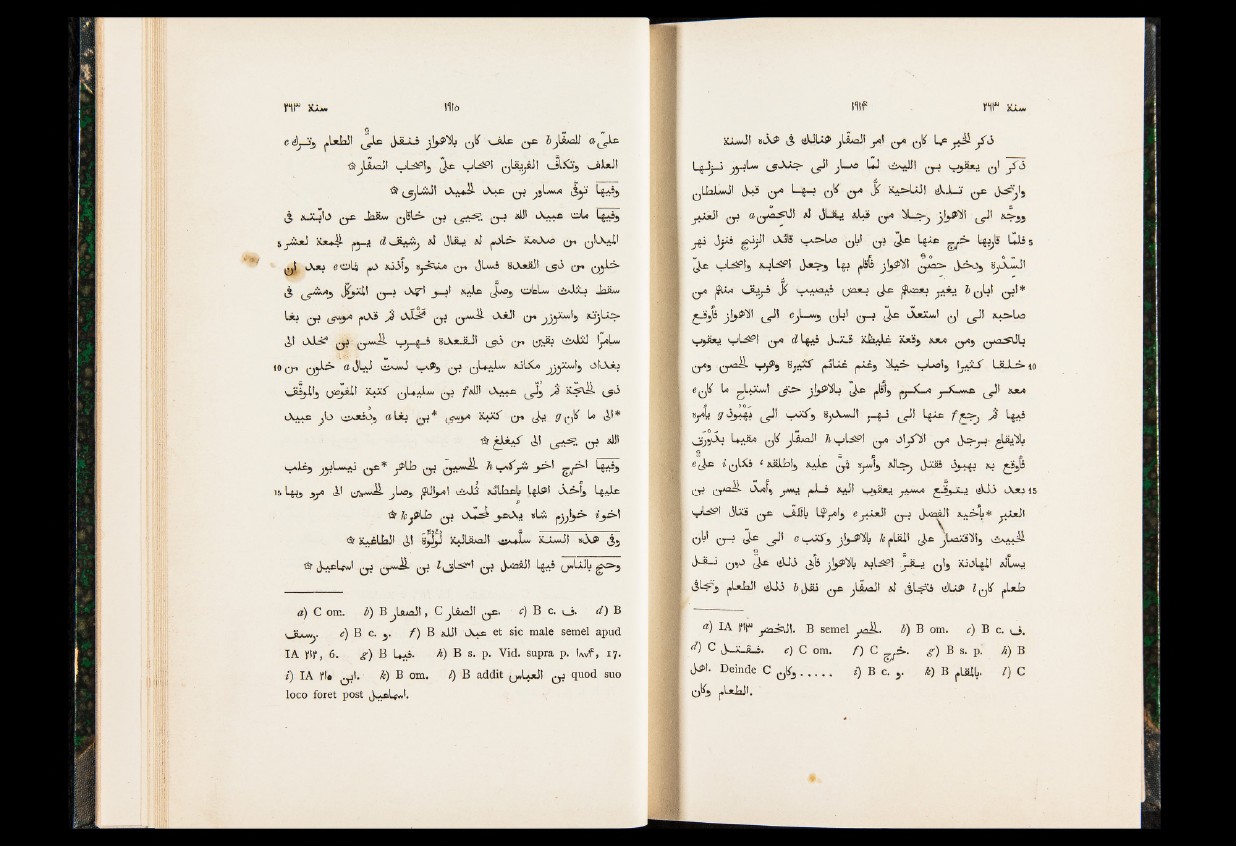 سنة ٢٦٣ ١٩١٤
ذكر الخبر عما كان من امر الصفّار هنالك فى هذه السنة
ذكر ان يعقوب بن الليث لمّا صار الى جندى سابور نزلها
وارتحل عن تلك الناحية كلّ من كان بها من قبل السلطان
ووجّه الى الاهواز رجلا من قبله يقال له الحصن a بن العنبر
5 فلمّا قاربها خرج عنها علىّ بن ابان صاحب قائد الزنج فنزل نهر
السدرة ودخل حصن الاهواز فأقام بها وجعل اصحابه واصحاب علىّ
*ابن ابان b يغير بعضهم على بعض فيصيب كلّ فريق منهم من
صاحبه الى ان استعدّ علىّ بن ابان وسار c الى الاهواز فأوقع
بالحصن ومن معه وقعة غليظة قتل فيها d من اصحاب يعقوب
10 خلقا كثيرا واصاب خيلا وغنم غنائم كثيرة وهرب الحصن ومن
معه الى عسكر مكرم وأقام علىّ بالاهواز حتى استباح ما كان e
فيها ثم رجع f عنها الى نهر السدرة وكتب الى بهبوذ g يأمره
بالايقاع برجل من الاكراد من اصحاب h الصفّار كان مقيما بدورق
فأوقع به بهبوذ فقتل رجاله وأسره فمنّ عليه واطلقه c فكان i علىّ e
15 بعد ذلك يتوقّع مسير يعقوب اليه فلم يسر وأمدّ الحصن بن
العنبر *بأخيه الفضل بن العنبر e وامرهما بالكفّ عن قتال اصحاب
الخبيث والاقتصار على المقام k بالاهواز وكتب c الى علىّ بن ابان
يسأله المهادنة وان يقرّ اصحابه بالاهواز فأبى ذلك علىّ دون نقل
طعام كان l هناك فتجافى له الصفّار عن نقل b ذلك الطعام وتجافى
a) IA ٢١٣ الخضر. B semel الخضر. b) B om. c) B c. ف.
d) C فقتل. e) C om. f) C خرج. g) B s. p. h) B
اهل. Deinde C وكان ..... i) B c. و. k) B بالمقام. l) C
الطعام وكان.
سنة ٢٦٣ ١٩١٥
علىّ a للصفّار b عن علف كان بالاهواز فنقل علىّ الطعام وترك c
العلف وتكافّ الفريقان اصحاب علىّ واصحاب الصفّار ۞
وفيها توفّى مساور بن عبد الحميد الشارى ۞
وفيها مات عبيد الله بن يحيى بن خاقان سقط عن دابّته فى
5 الميدان من صدمة خادم له يقال له رشيق d يوم الجمعة لعشر
خلون من ذى القعدة فسال من منخره وأذنه دم فمات e بعد ان
سقط بثلث ساعات وصلّى عليه ابو احمد بن المتوكّل ومشى فى
جنازته واستوزر من الغد الحسن بن مخلد ثم قدم موسى بن بغا
سامرّا لثلث بقين من ذى القعدة فهرب الحسن بن مخلد الى
10 بغداد واستوزر مكانه سليمان بن وهب لستّ ليال a خلون من
ذى الحجّة ثم ولّى عبيد الله f بن سليمان كتبة المفوّض والموفّق
*الى ما كان g يلى من كتبة موسى *بن بغا a ودفعت دار عبيد
الله بن يحيى الى كيغلغ ۞
وفيها اخرج اخو شركب h الحسين بن طاهر *عن نيسابور وغلب
15 عليها وأخذ اهلها باعطائه ثلث اموالهم وصار الحسين الى مرو وبها
اخو i خوارزم شاه يدعو لمحمّد بن طاهر k ۞
وفى هذه السنة سلّمت الصقالبة لؤلؤة الى الطاغية ۞
وحجّ بالناس فيها الفضل بن اسحاق l بن الحسن بن اسماعيل ۞
a) C om. b) B الصفار, C عن الصفار. c) B c. ف. d) B
رسىف. e) B c. و. f) B عبد الله et sic male semel apud
IA ٢١٢, 6. g) B فيها. h) B s. p. Vid. supra p. ١٨٧٣, 17.
i) IA ٢١٥ ابن. k) B om. l) B addit بن العباس quod suo
loco foret post اسماعيل.